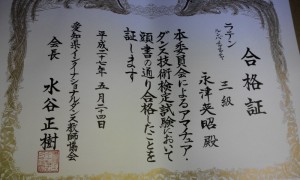 合格証
ラテン
三級
永津英昭殿
本委員会によるアマチュア・
ダンス技術検定試験において
頭書の通り合格したことを
証します
平成二十六年 五月二十四日
愛知県インターナショナルダンス教師協会
会長 水谷正樹